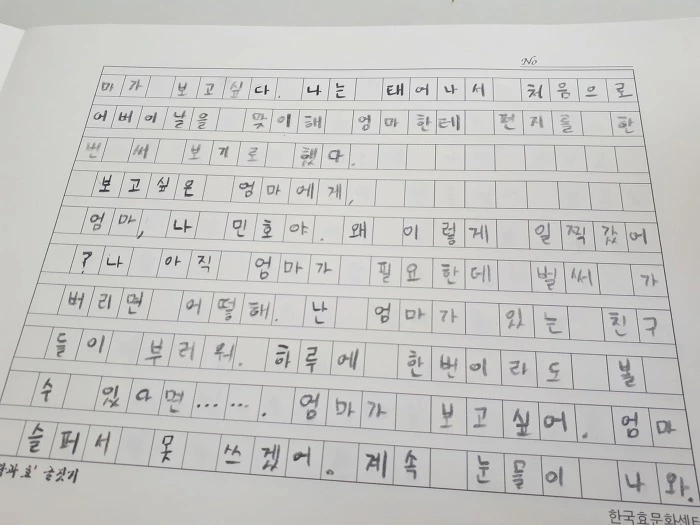 No
마가 보고싶다. 나는 태어나서 처음으로
어버이날을 맞이해 엄마한테 편지를 한
번 써 보기로 했다.
보고싶은 엄마에게,
엄마, 나 민호야. 왜 이렇게 일찍갔어
? 나 아직 엄마가 필요한데 벌써 가
버리면 어떡해. 난 엄마가 있는 친구
들이 부러워. 하루에 한번이라도 볼
수 있다면……. 엄마가 보고싶어. 엄마
슬퍼서 못 쓰겠어. 계속 눈물이 나와.
효' 글짓기
한국효문화센터